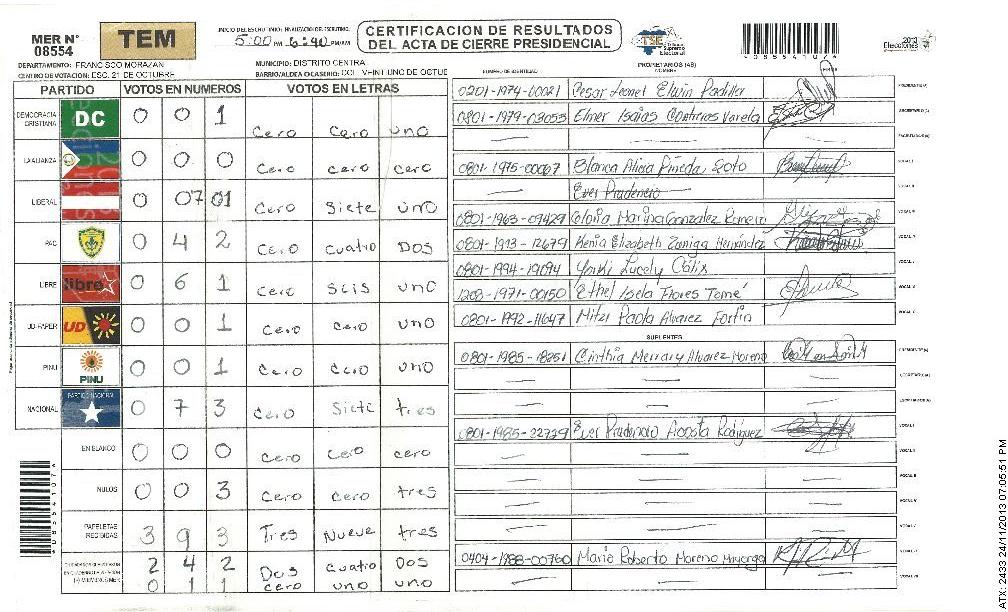 MER N° 08554
TEM
INICIO DEL ESCRUTINIO: FINALIZACION DEL ESCRUTINIO:
5:00 PM 6:40 PM/AM
CERTIFICACION DE RESULTADOS
DEL ACTA DE CIERRE PRESIDENCIAL
TSE Tribunal Supremo Electoral
2013 Elecciones
DEPARTAMENTO: FRANCISCO MORAZAN
MUNICIPIO: DISTRITO CENTRAL
CENTRO DE VOTACION: ESC. 21 DE OCTUBRE
BARRIO/ALDEA O CASERIO: COL. VEINTIUNO DE OCTUB
NUMERO DE IDENTIDAD PROPIETARIOS (AS) NOMBRE FIRMA
PARTIDO VOTOS EN NUMEROS VOTOS EN LETRAS
DEMOCRACIA CRISTIANA DC 0 0 1 Cero Cero uno
LA ALIANZA 0 0 0 Cero cero cero
LIBERAL 0 07 01 Cero Siete uno
PAC 0 4 2 Cero cuatro Dos
LIBRE libre 0 6 1 Cero Seis uno
UD-FAPER UD 0 0 1 Cero cero uno
PINU PINU 0 0 1 Cero cero uno
NACIONAL PARTIDO NACIONAL 0 7 3 Cero Siete tres
EN BLANCO 0 0 0 Cero cero cero
NULOS 0 0 3 Cero cero tres
PAPELETAS RECIBIDAS 3 9 3 Tres Nueve tres
2 4 2 Dos cuatro Dos
(+) MIEMBROS MER 0 1 1 cero uno uno
0201-1974-00021 Cesar Leonel Elvin Padilla
0801-1979-03055 Elmer Isaias Contreras Varela
0801-1975-00067 Blanca Alicia Pineda Soto
Ever Prudencio
0801-1963-09429 Gloria Marina Gonzalez Romero
0801-1973-12679 Kenia Elizabeth Zuniga Hernández
0801-1994-19094 Yorki Lucely Cálix
1208-1971-00150 Ethel Isela Flores Tomé
0801-1992-11647 Mitzi Paola Alvarez Fortin
SUPLENTES
0801-1985-18251 Cinthia Merary Alvarez Moreno
0801-1985-22729 Ever Prudencio Acosta Rodriguez
0404-1988-00760 Mario Roberto Moreno Mayorga
ATX: 2433 24/11/2013 07:05:51 PM